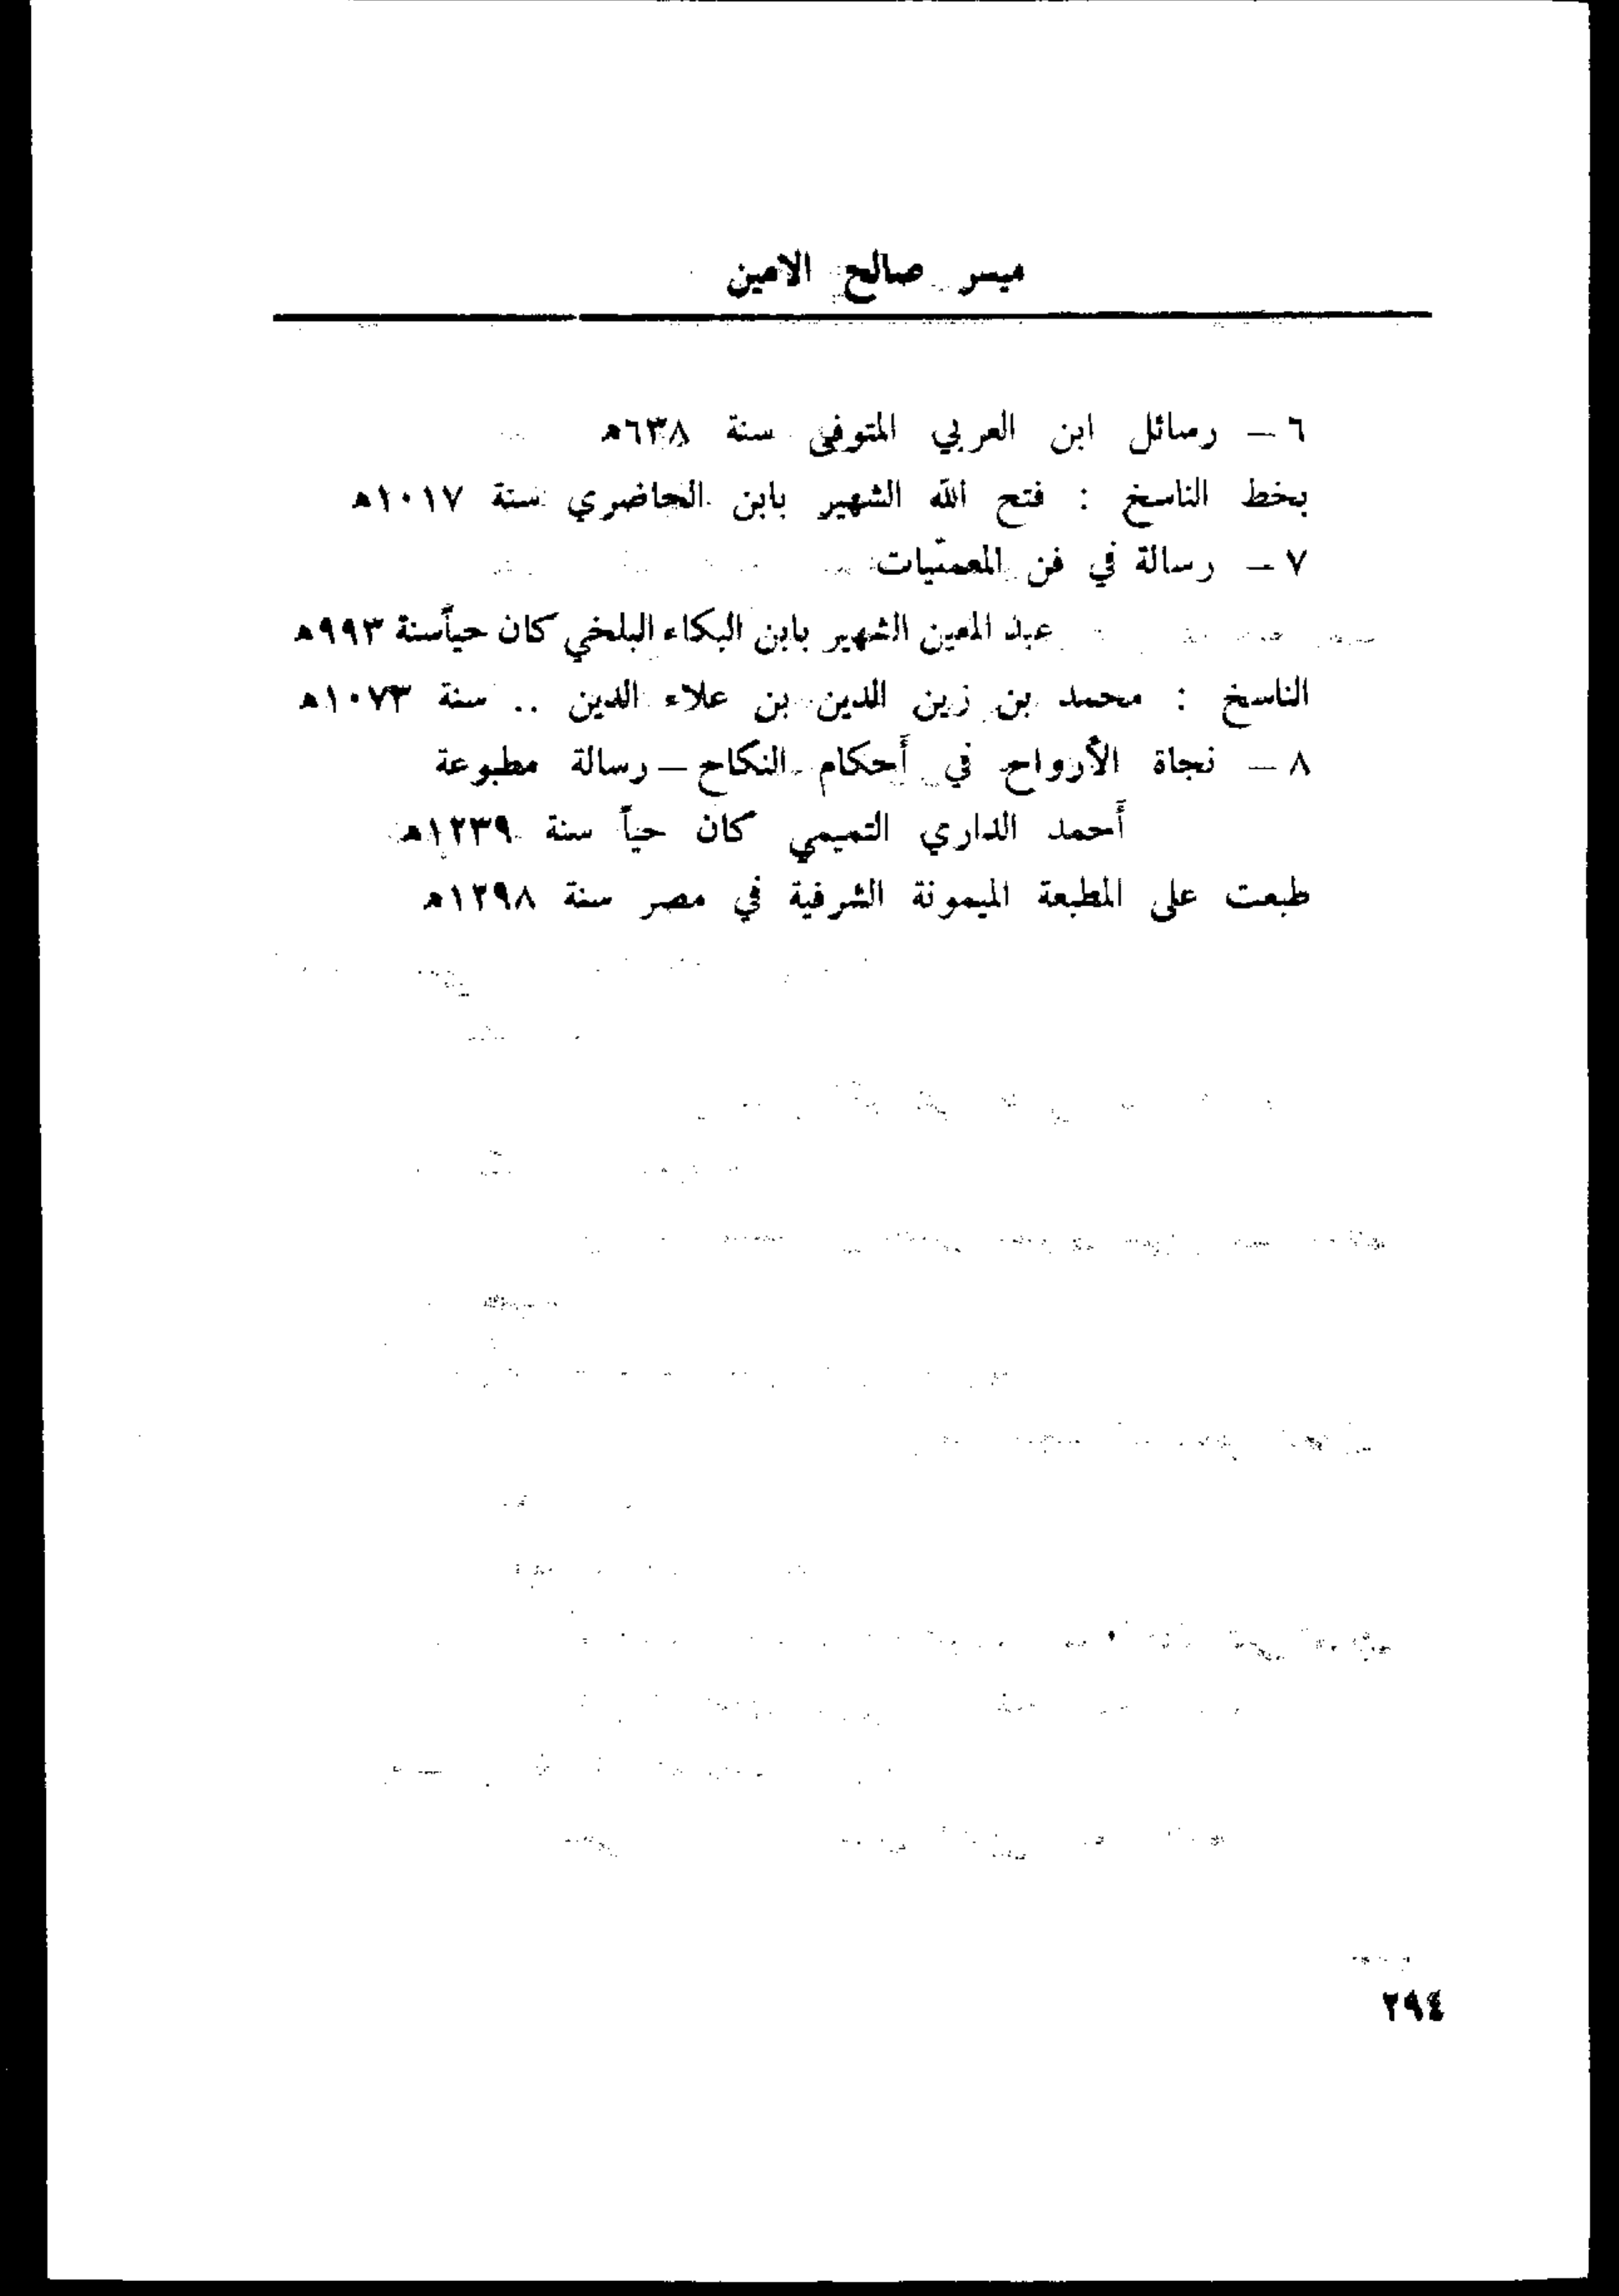 ميسر صالح الامين
٦ — رسائل ابن العربي المتوفى سنة ٦٣٨ه
بخط الناسخ : فتح الله الشهير بابن الحاضري سنة ١٠١٧ه
٧ — رسالة في فن المعمّيات
عبد المعين الشهير بابن البكاء البلخي كان حياًسنة ٩٩٣ه
الناسخ : محمد بن زين الدين بن علاء الدين .. سنة ١٠٧٣ه
٨ — نجاة الأرواح في أحكام النكاح — رسالة مطبوعة
أحمد الداري التميمي كان حياً سنة ١٢٣٩ه
طبعت على المطبعة الميمونة الشرفية في مصر سنة ١٢٩٨ه
٢٩٤